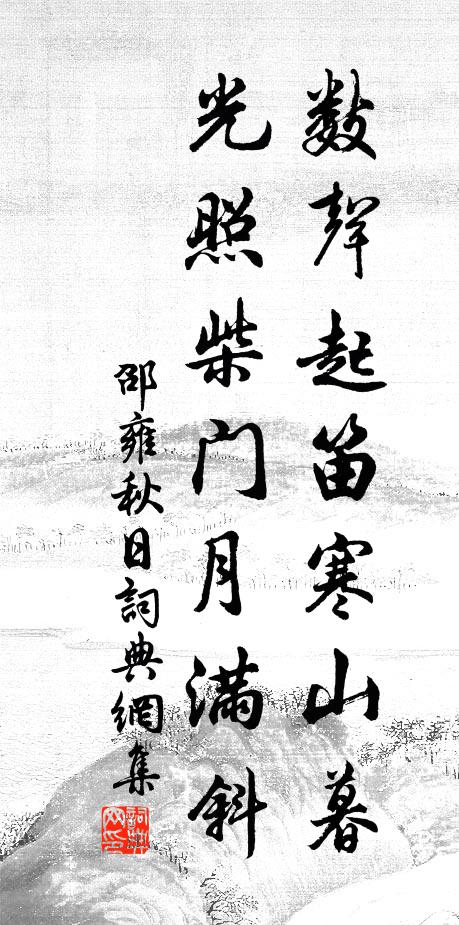 數聲起笛寒山暮
光照柴門月滿斜
邵雍秋日詞典網集